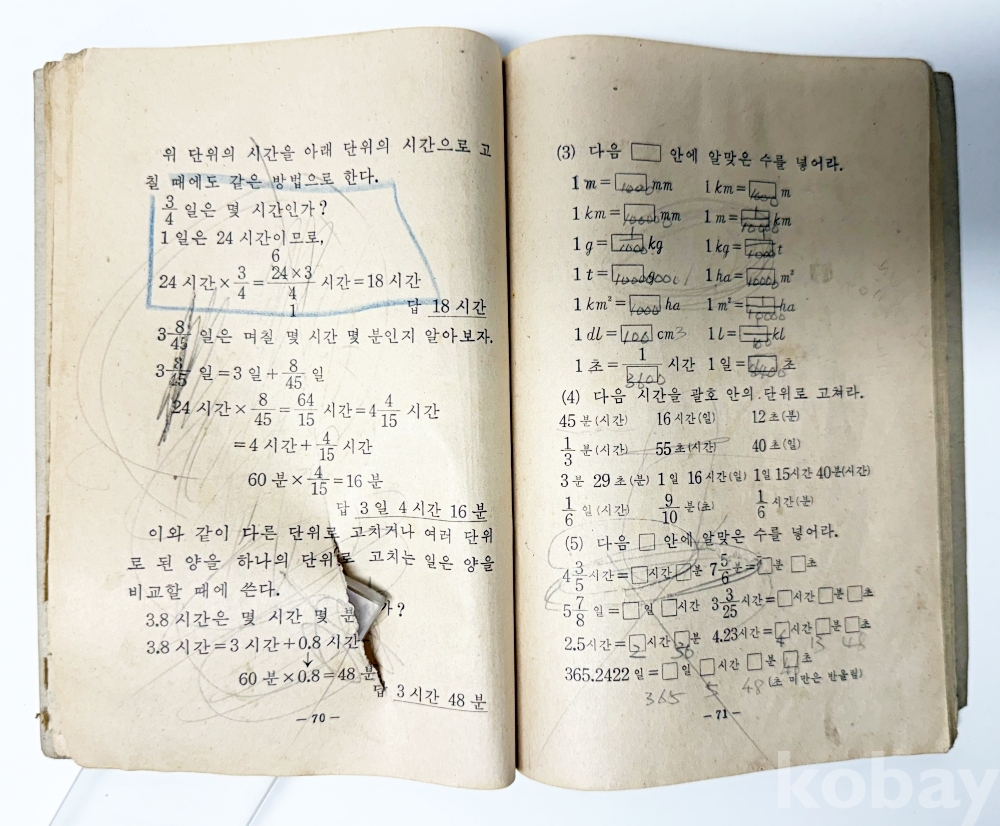 위 단위의 시간을 아래 단위의 시간으로 고
칠 때에도 같은 방법으로 한다.
3/4 일은 몇 시간인가?
1 일은 24 시간이므로,
6
24 시간 × 3/4 = 24×3/4 시간 = 18 시간
1
답 18 시간
3 8/45 일은 며칠 몇 시간 몇 분인지 알아보자.
3 8/45 일 = 3 일 + 8/45 일
24 시간 × 8/45 = 64/15 시간 = 4 4/15 시간
= 4 시간 + 4/15 시간
60 분 × 4/15 = 16 분
답 3 일 4 시간 16 분
이와 같이 다른 단위로 고치거나 여러 단위
로 된 양을 하나의 단위로 고치는 일은 양을
비교할 때에 쓴다.
3.8 시간은 몇 시간 몇 분 가?
3.8 시간 = 3 시간 + 0.8 시간
↓
60 분 × 0.8 = 48 분
답 3 시간 48 분
— 70 —
(3) 다음 □ 안에 알맞은 수를 넣어라.
1 m = 1000 mm 1 km = 1000 m
1 km = mm 1 m = km
1 g = kg 1 kg = t
1 t = g 1 ha = m²
1 km² = ha 1 m² = ha
1 dl = 100 cm3 1 l = kl
1 초 = 1/3600 시간 1 일 = 초
(4) 다음 시간을 괄호 안의 단위로 고쳐라.
45 분 (시간) 16 시간 (일) 12 초 (분)
1/3 분 (시간) 55 초 (시간) 40 초 (일)
3 분 29 초 (분) 1 일 16 시간 (일) 1 일 15 시간 40 분 (시간)
1/6 일 (시간) 9/10 분 (초) 1/6 시간 (분)
(5) 다음 □ 안에 알맞은 수를 넣어라.
4 3/5 시간 = □ 시간 □ 분 7 5/6 분 = □ 분 □ 초
5 7/8 일 = □ 일 □ 시간 3 3/25 시간 = □ 시간 □ 분 □ 초
2.5 시간 = □ 시간 □ 분 4.23 시간 = □ 시간 □ 분 □ 초
2 30 4 13 48
365.2422 일 = □ 일 □ 시간 □ 분 □ 초
365 5 48 (초 미만은 반올림)
— 71 —
kobay